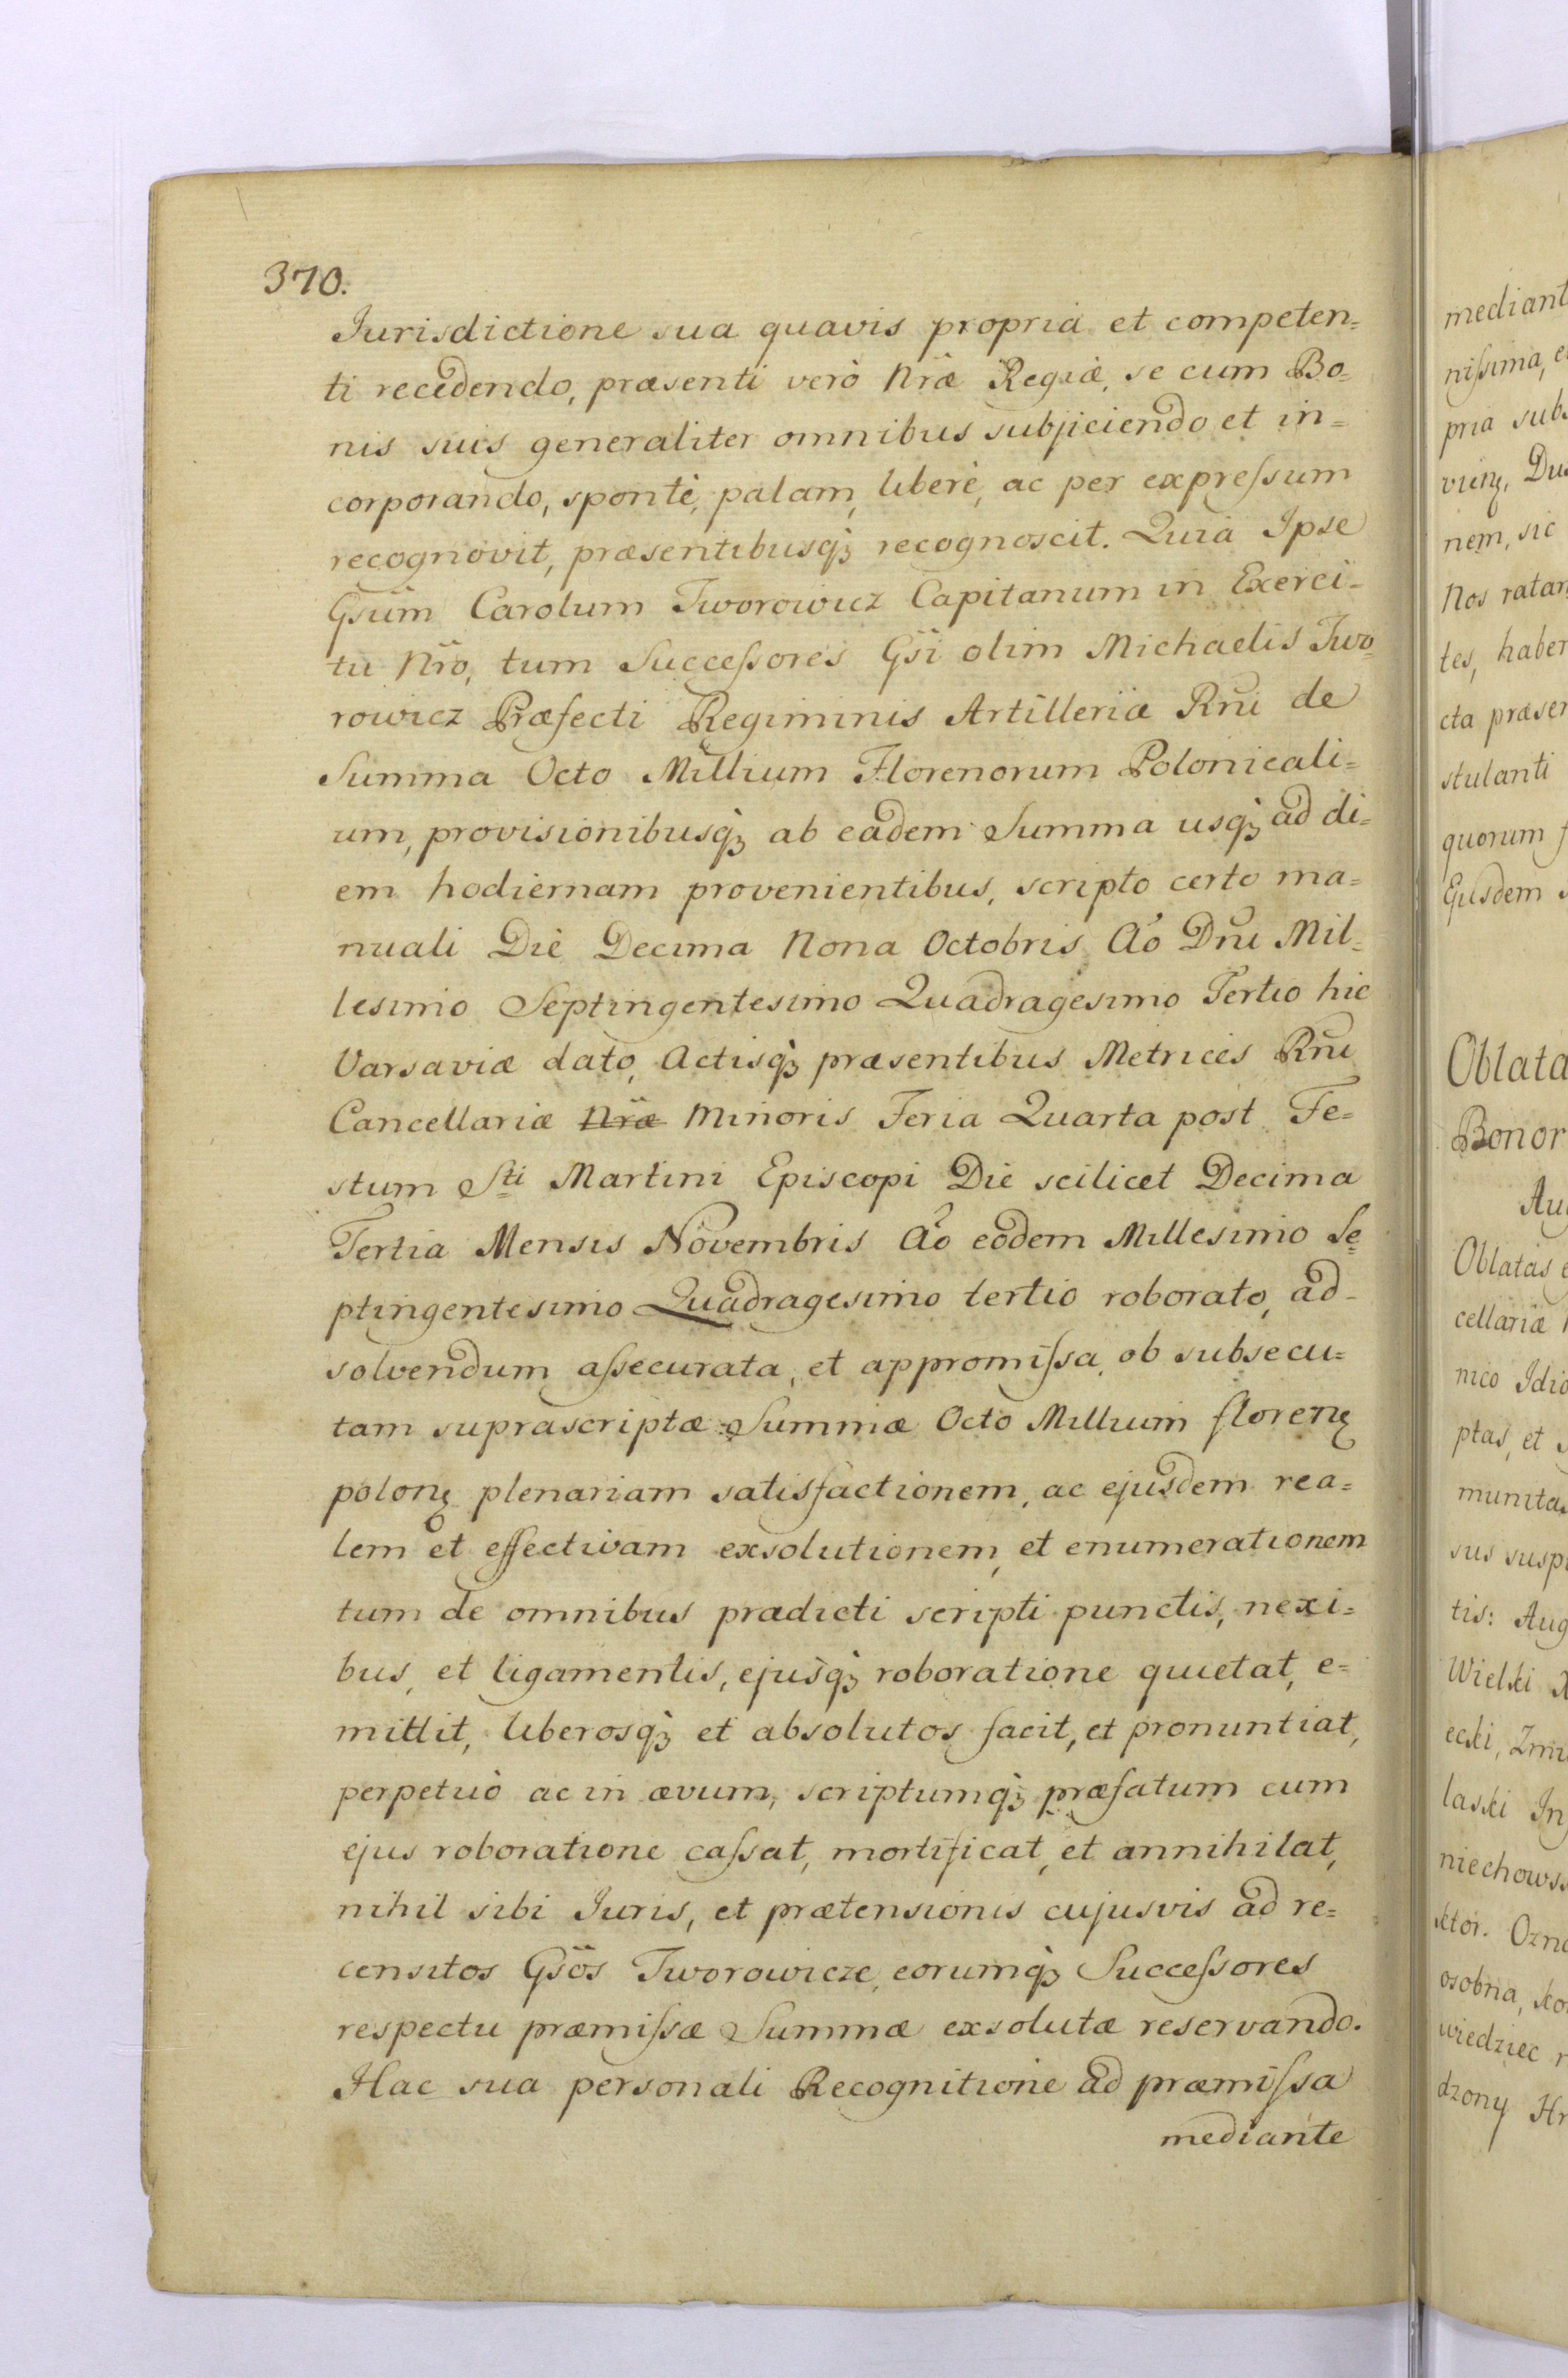 370.
Jurisdictione sua quavis propria et competen=
ti recedendo, præsenti verò Nræ Regiæ, se cum Bo=
nis suis generaliter omnibus subjiciendo et in=
corporando, spontè, palam, liberè, ac per expreſsum
recognovit, præsentibusq̀ꝫ recognoscit. Quia Ipse
Gsum Carolum Tworowicz Capitanum in Exerci=
tu Nro, tum Succeſsores Gsi olim Michaelis Two=
rowicz Præfecti Regiminis Artilleriæ Rñi de
Summa Octo Millium Florenorum Polonicali=
um, provisionibusq̀ꝫ ab eadem Summa usq̀ꝫ ad di=
em hodiernam provenientibus, scripto certo ma=
nuali Die Decima Nona Octobris Aõ Dñi Mil=
lesimo Septingentesimo Quadragesimo Tertio hic
Varsaviæ dato, Actisq̀ꝫ præsentibus Metrices Rñi
Cancellariæ Nræ Minoris Feria Quarta post Fe=
stum Sti Martini Episcopi Die scilicet Decima
Tertia Mensis Novembris Aõ eodem Millesimo Se=
ptingentesimo Quadragesimo tertio roborato, ad
solvendum aſsecurata, et appromiſsa, ob subsecu=
tam suprascriptæ Summæ Octo Millium florenꝝ
polonꝝ plenariam satisfactionem, ac ejusdem rea=
lem et effectivam exsolutionem, et enumerationem
tum de omnibus prædicti scripti punctis, nexi=
bus, et ligamentis, ejusq̀ꝫ roboratione quietat, e=
mittit, liberosq̀ꝫ et absolutos facit, et pronuntiat,
perpetuò ac in ævum, scriptumq̀ꝫ præfatum cum
ejus roboratione caſsat, mortificat, et annihilat,
nihil sibi Juris, et prætensionis cujusvis ad re=
censitos Gsos Tworowicze, eorumq̀ꝫ Succeſsores
respectu præmiſsæ Summæ exsolutæ reservando.
Hac sua personali Recognitione ad præmiſsa
mediante
mediant
niſsima, e
pria subs
vienꝝ, Du
nem, sic
Nos ratam
tes, haber
cta præsen
stulanti
quorum f
Ejusdem s
Oblata
Bonor
Au
Oblatas e
cellariæ
nico Idio
ptas, et s
munitas
sus susp
tis: Aug
Wielki X
ecki, Zmu
laski In
niechows
ktor. Ozna
osobna, ko
wiedziec
dzony Hr